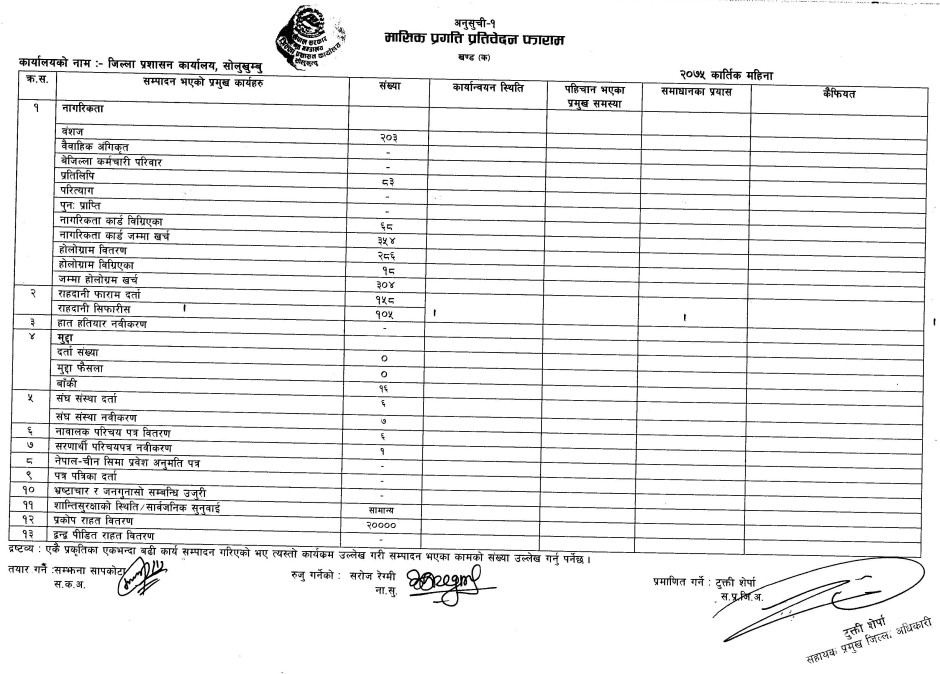 अनुसुची-१
मासिक प्रगति प्रतिवेदन फाराम
खण्ड (क)
कार्यालयको नाम :- जिल्ला प्रशासन कार्यालय, सोलुखुम्बु
२०७५ कार्तिक महिना
क्र.स. सम्पादन भएको प्रमुख कार्यहरु संख्या कार्यान्वयन स्थिति पहिचान भएका प्रमुख समस्या समाधानका प्रयास कैफियत
१ नागरिकता
वंशज २०३
वैवाहिक अंगिकृत -
बेजिल्ला कर्मचारी परिवार -
प्रतिलिपि ८३
परित्याग -
पुनः प्राप्ति -
नागरिकता कार्ड विग्रिएका ६८
नागरिकता कार्ड जम्मा खर्च ३५४
होलोग्राम वितरण २८६
होलोग्राम विग्रिएका १८
जम्मा होलोग्रम खर्च ३०४
२ राहदानी फाराम दर्ता १५८
राहदानी सिफारीस १०५
३ हात हतियार नवीकरण -
४ मुद्दा
दर्ता संख्या ०
मुद्दा फैसला ०
बाँकी १६
५ संघ संस्था दर्ता ६
संघ संस्था नवीकरण ७
६ नावालक परिचय पत्र वितरण ६
७ सरणार्थी परिचयपत्र नवीकरण १
८ नेपाल-चीन सिमा प्रवेश अनुमति पत्र -
९ पत्र पत्रिका दर्ता -
१० भ्रष्टाचार र जनगुनासो सम्बन्धि उजुरी -
११ शान्तिसुरक्षाको स्थिति/सार्वजनिक सुनुवाई सामान्य
१२ प्रकोप राहत वितरण २००००
१३ द्वन्द्व पीडित राहत वितरण -
द्रष्टव्य : एकै प्रकृतिका एकभन्दा बढी कार्य सम्पादन गरिएको भए त्यस्तो कार्यक्रम उल्लेख गरी सम्पादन भएका कामको संख्या उल्लेख गर्नु पर्नेछ ।
तयार गर्ने :सम्झना सापकोटा
स.क.अ.
रुजु गर्नेको : सरोज रेग्मी
ना.सु.
प्रमाणित गर्ने : टुक्ती शेर्पा
स.प्र.जि.अ.
टुक्ती शेर्पा
सहायक प्रमुख जिल्ला अधिकारी